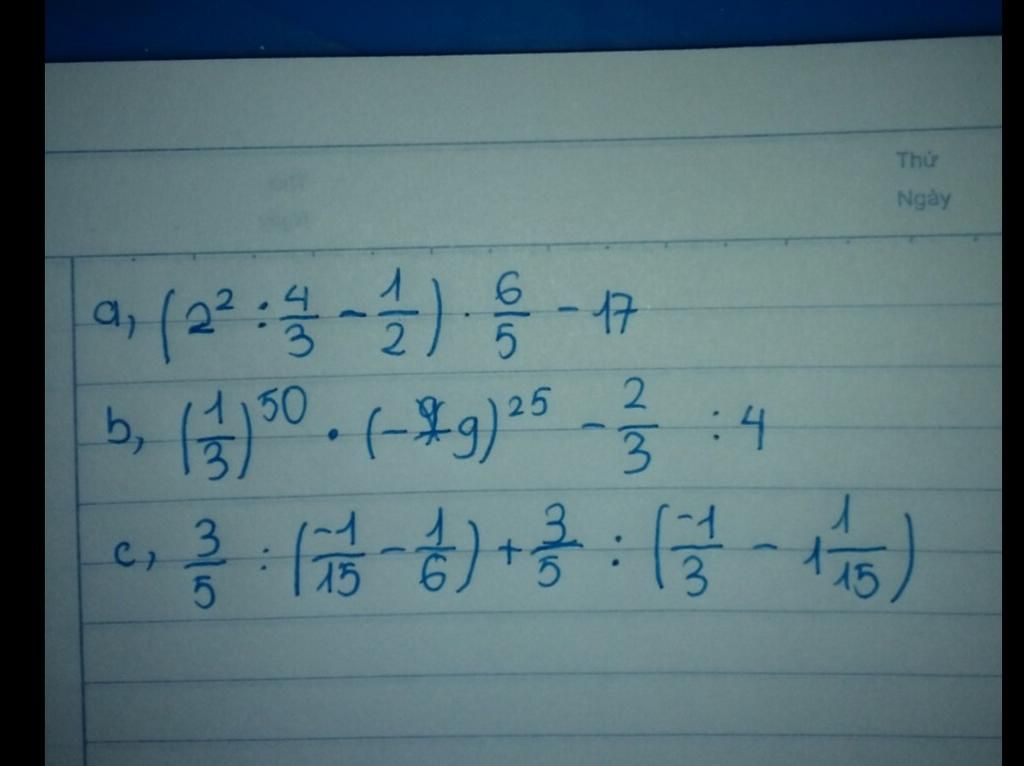 Thứ
Ngày
a, (2² : 4/3 - 1/2) . 6/5 - 17
b, (1/3)⁵⁰ . (-9)²⁵ - 2/3 : 4
c, 3/5 : (-1/15 - 1/6) + 3/5 : (-1/3 - 1 1/15)